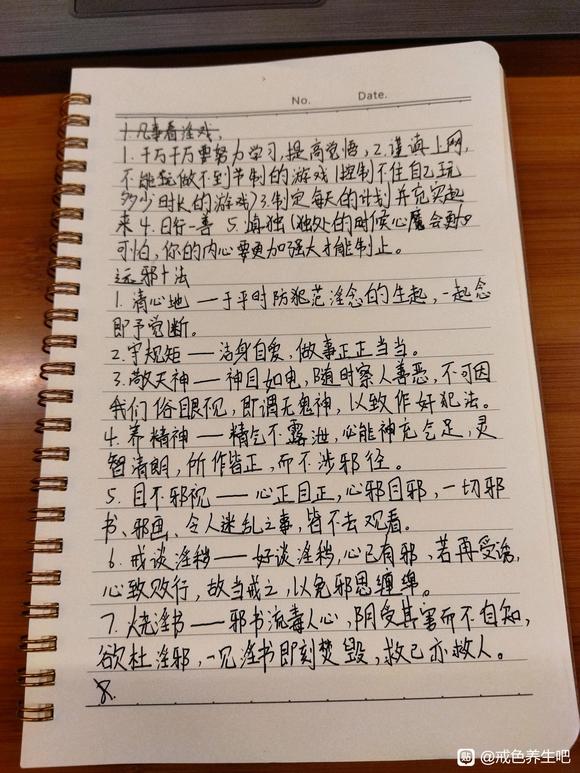 No. Date.
1.千万千万要努力学习,提高觉悟,2.谨慎上网,
不能玩做不到节制的游戏(控制不住自己玩
多少时长的游戏)3.制定每天的计划并充实起
来4.日行一善 5.慎独(独处的时候心魔会更加
可怕,你的内心要更加强大才能制止。
远邪十法
1.清心地——于平时防犯范淫念的生起,一起念
即予觉断。
2.守规矩——洁身自爱,做事正正当当。
3.敬天神——神目如电,随时察人善恶,不可因
我们俗眼不见,即谓无鬼神,以致作奸犯法。
4.养精神——精气不露泄,必能神充气足,灵
智清朗,所作皆正,而不涉邪径。
5.目不邪视——心正目正,心邪目邪,一切邪
书、邪画、令人迷乱之事,皆不去观看。
6.戒谈淫秽——好谈淫秽,心已有邪、若再受诱,
心致败行,故当戒之,以免邪思缠绵。
7.烧淫书——邪书流毒人心,阴受其害而不自知,
欲杜淫邪,一见淫书即刻焚毁,救己亦救人。
贴 @戒色养生吧